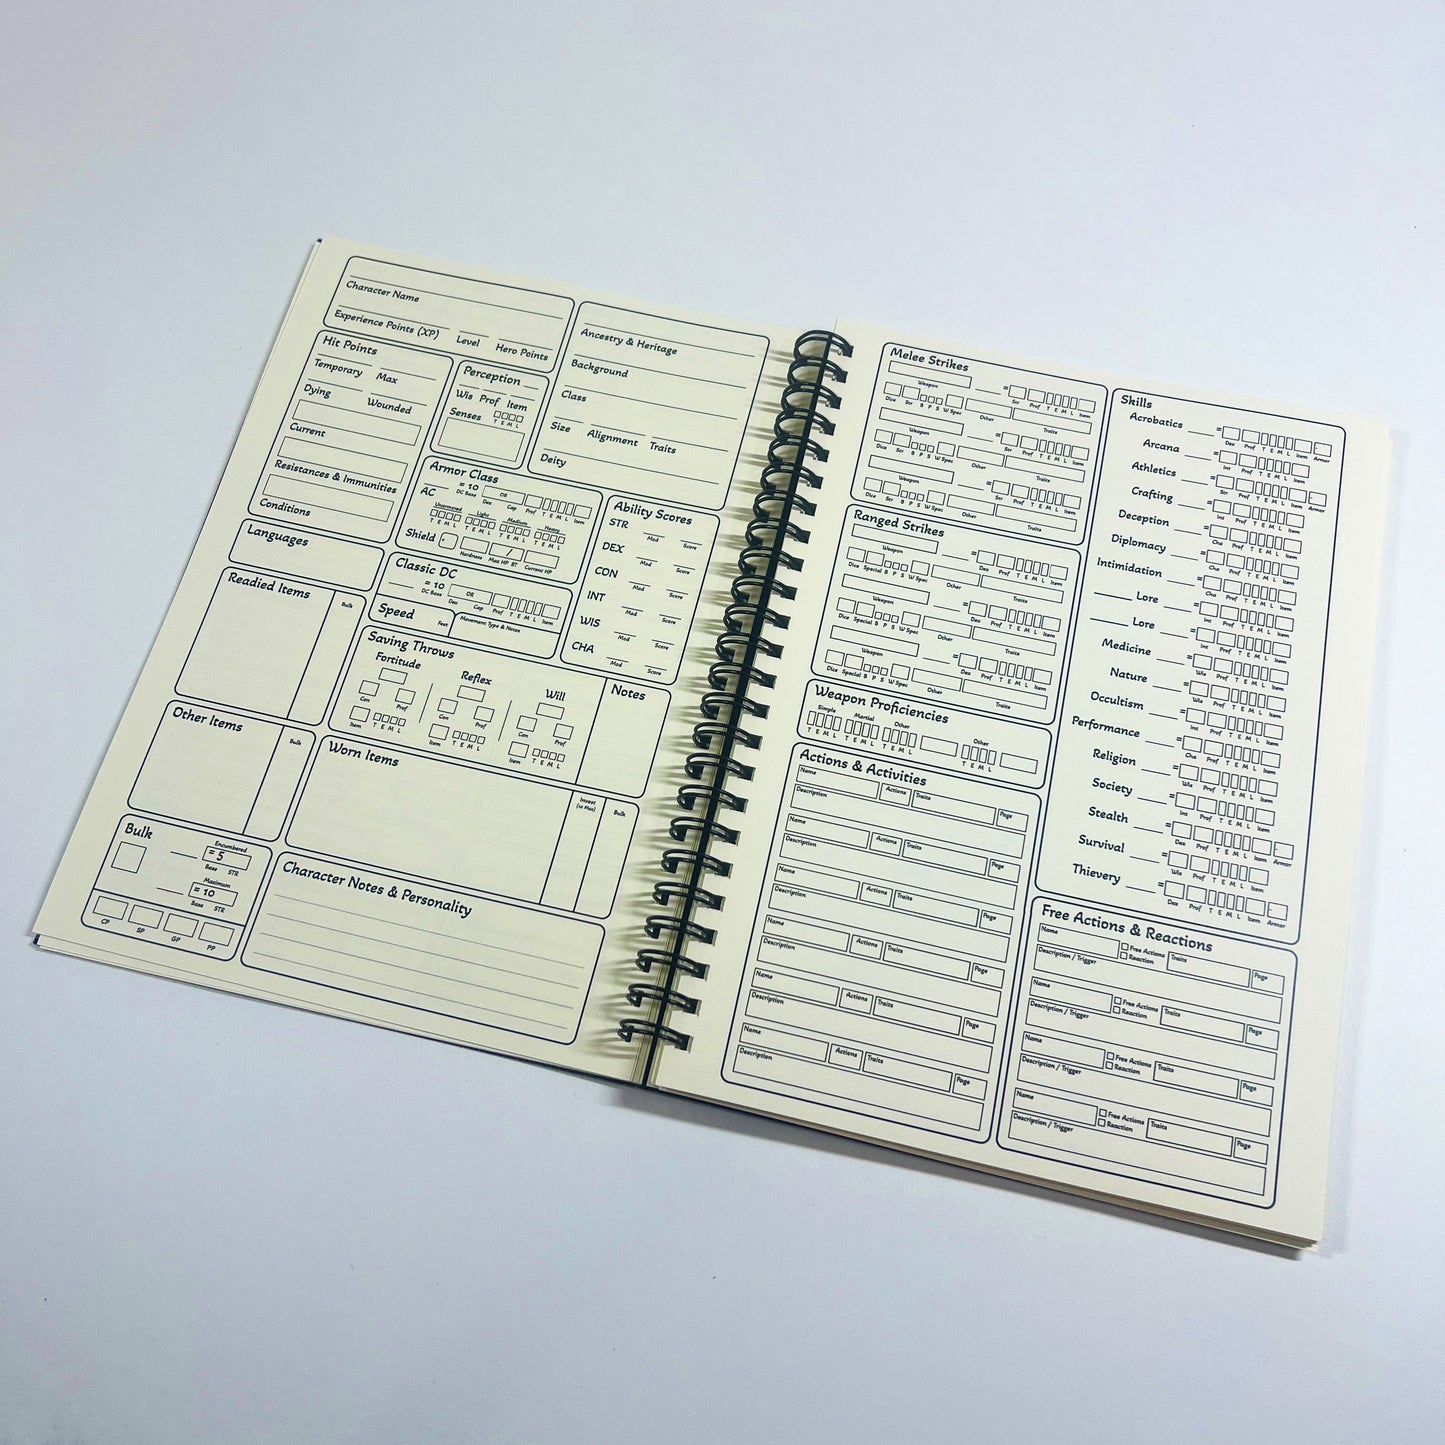 Character Name
Experience Points (XP) Level Hero Points
Ancestry & Heritage
Background
Class
Size Alignment Traits
Deity
Hit Points
Temporary Max
Dying Wounded
Current
Resistances & Immunities
Conditions
Perception
Wis Prof Item
Senses T E M L
Armor Class
AC = 10 OR
DC Base Dex Cap Prof T E M L Item
Unarmored Light Medium Heavy
T E M L T E M L T E M L T E M L
Shield /
Hardness Max HP BT Current HP
Ability Scores
STR
Mod Score
DEX
Mod Score
CON
Mod Score
INT
Mod Score
WIS
Mod Score
CHA
Mod Score
Languages
Classic DC
= 10 OR
DC Base Dex Cap Prof T E M L Item
Speed
Feet Movement Type & Notes
Readied Items Bulk
Saving Throws
Fortitude Reflex Will
Con Prof Con Prof Con Prof
Item T E M L Item T E M L Item T E M L
Notes
Other Items Bulk
Worn Items Invest (10 Max) Bulk
Bulk
Encumbered
= 5
Base STR
Maximum
= 10
Base STR
CP SP GP PP
Character Notes & Personality
Melee Strikes
Weapon = Str Prof T E M L Item
Dice Str B P S W Spec Other Traits
Weapon = Str Prof T E M L Item
Dice Str B P S W Spec Other Traits
Weapon = Str Prof T E M L Item
Dice Str B P S W Spec Other Traits
Ranged Strikes
Weapon = Dex Prof T E M L Item
Dice Special B P S W Spec Other Traits
Weapon = Dex Prof T E M L Item
Dice Special B P S W Spec Other Traits
Weapon = Dex Prof T E M L Item
Dice Special B P S W Spec Other Traits
Weapon Proficiencies
Simple Martial Other Other
T E M L T E M L T E M L T E M L
Actions & Activities
Name Actions Traits Page
Description
Name Actions Traits Page
Description
Name Actions Traits Page
Description
Name Actions Traits Page
Description
Name Actions Traits Page
Description
Name Actions Traits Page
Description
Skills
Acrobatics = Dex Prof T E M L Item Armor
Arcana = Int Prof T E M L Item
Athletics = Str Prof T E M L Item Armor
Crafting = Int Prof T E M L Item
Deception = Cha Prof T E M L Item
Diplomacy = Cha Prof T E M L Item
Intimidation = Cha Prof T E M L Item
Lore = Int Prof T E M L Item
Lore = Int Prof T E M L Item
Medicine = Wis Prof T E M L Item
Nature = Wis Prof T E M L Item
Occultism = Int Prof T E M L Item
Performance = Cha Prof T E M L Item
Religion = Wis Prof T E M L Item
Society = Int Prof T E M L Item
Stealth = Dex Prof T E M L Item Armor
Survival = Wis Prof T E M L Item
Thievery = Dex Prof T E M L Item Armor
Free Actions & Reactions
Name Free Actions Traits Page
Reaction
Description / Trigger
Name Free Actions Traits Page
Reaction
Description / Trigger
Name Free Actions Traits Page
Reaction
Description / Trigger
Name Free Actions Traits Page
Reaction
Description / Trigger